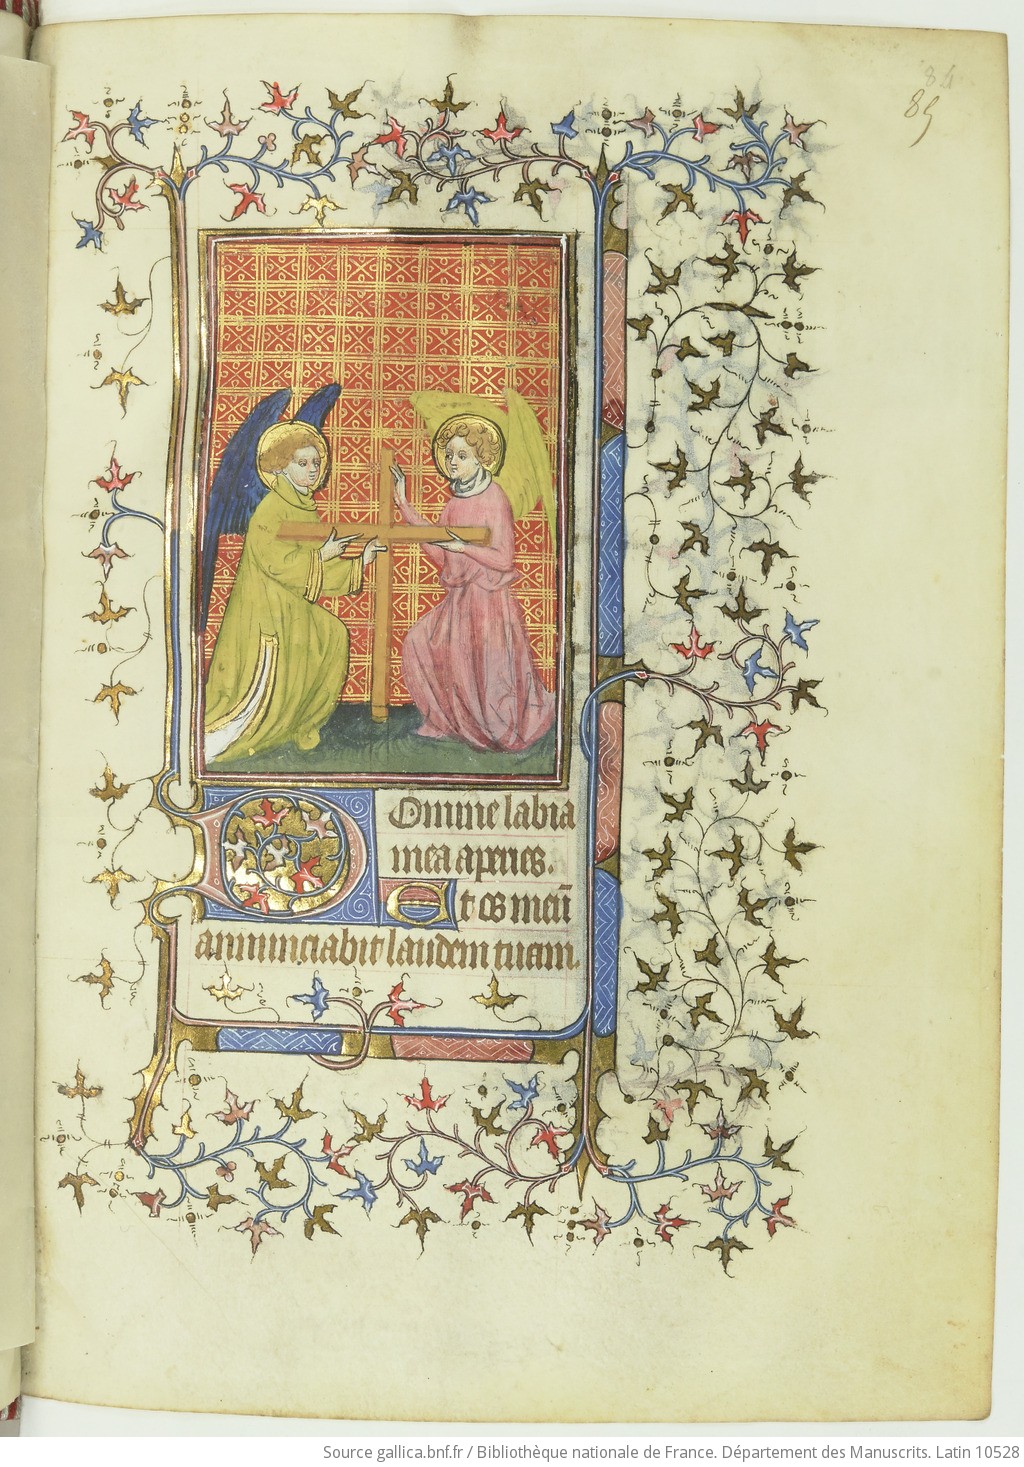 84
85
Domine labia
mea aperies.
Et os meū
annunciabit laudem tuam.
Source gallica.bnf.fr / Bibliothèque nationale de France. Département des Manuscrits. Latin 10528